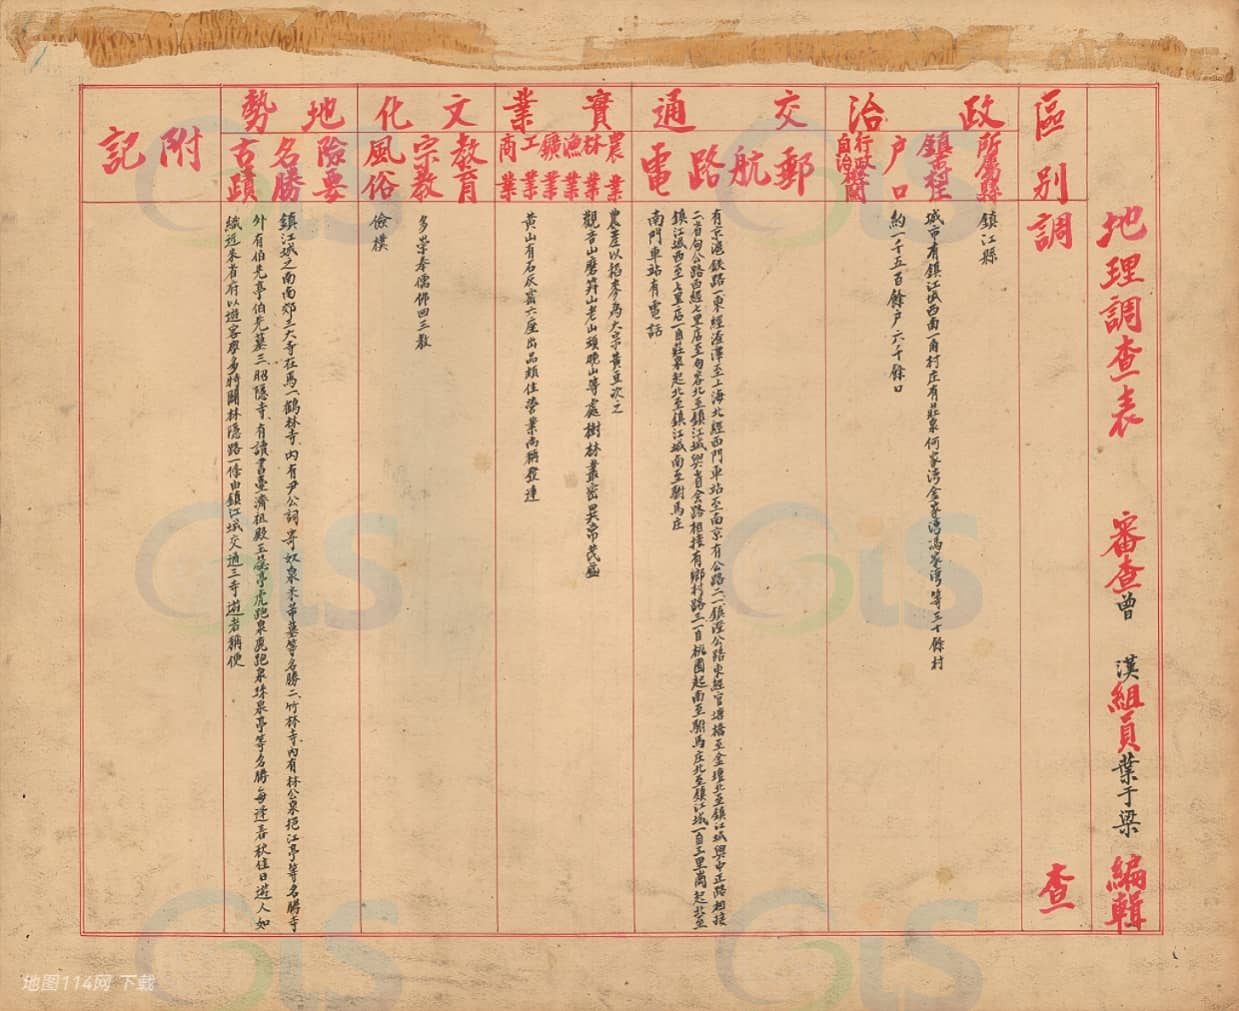 地理調查表 審查 曾漢 組員 葉于梁 編輯
區別
調查
政治
所屬縣
鎮市村莊
户口
行政機關
自治機關
鎮江縣
城市有鎮江城西南一角村庄有莊泉何家湾金家湾馮家湾等三十餘村
約一千五百餘户六千餘口
交通
郵航路電
有京滬鉄路一東經滬澤至上海北經西門車站至南京有公路二一鎮澄公路東經官塘橋至金壇北至鎮江城與中正路相接
二省句公路西經七里店至句容北至鎮江城與省会路相接有鄉村路三一自桃園起南至駙馬庄北至鎮江城一自三里崗起北至
鎮江城西至七里店一自莊泉起北至鎮江城南至駙馬庄
南門車站有電話
實業
農業
林業
漁業
鑛業
工業
商業
農產以稻麥為大宗黃豆次之
觀音山磨笄山老山頭晚山等處樹林叢密異常茂盛
黃山有石灰窰六座出品頗佳營業尚稱發達
文化
教育
宗教
風俗
多崇奉儒佛回三教
儉樸
地勢
險要
名勝
古蹟
鎮江城之南南郊三大寺在焉一鶴林寺、內有尹公詞寄奴泉米芾墓等名勝二、竹林寺、內有林公泉挹江亭等名勝寺
外有伯先亭伯先墓三、昭隱寺、有讀書臺濟祖殿玉蕊亭虎跑泉鹿跑泉珠泉亭等名勝每逢春秋佳日遊人如
織近來省府以遊客衆多特闢林隱路一條由鎮江城交通三寺遊者稱便
附記
GIS
GIS
GIS
GIS
GIS
GIS
地图114网 下载